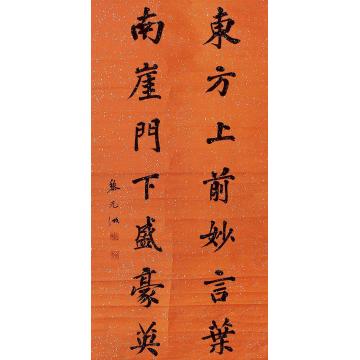 東方上前妙言葉
南崖門下盛豪英